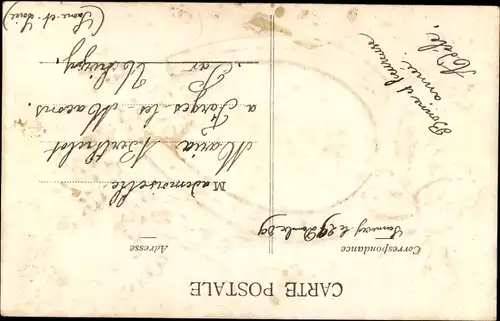 CARTE POSTALE
Correspondance
Adresse
le 29 Xbre 09
Bonne et heureuse
année
Adèle
Mademoiselle
Maria Berthelot
a Farges les Macons
Par Uchizy
(Saone-et-Loire)